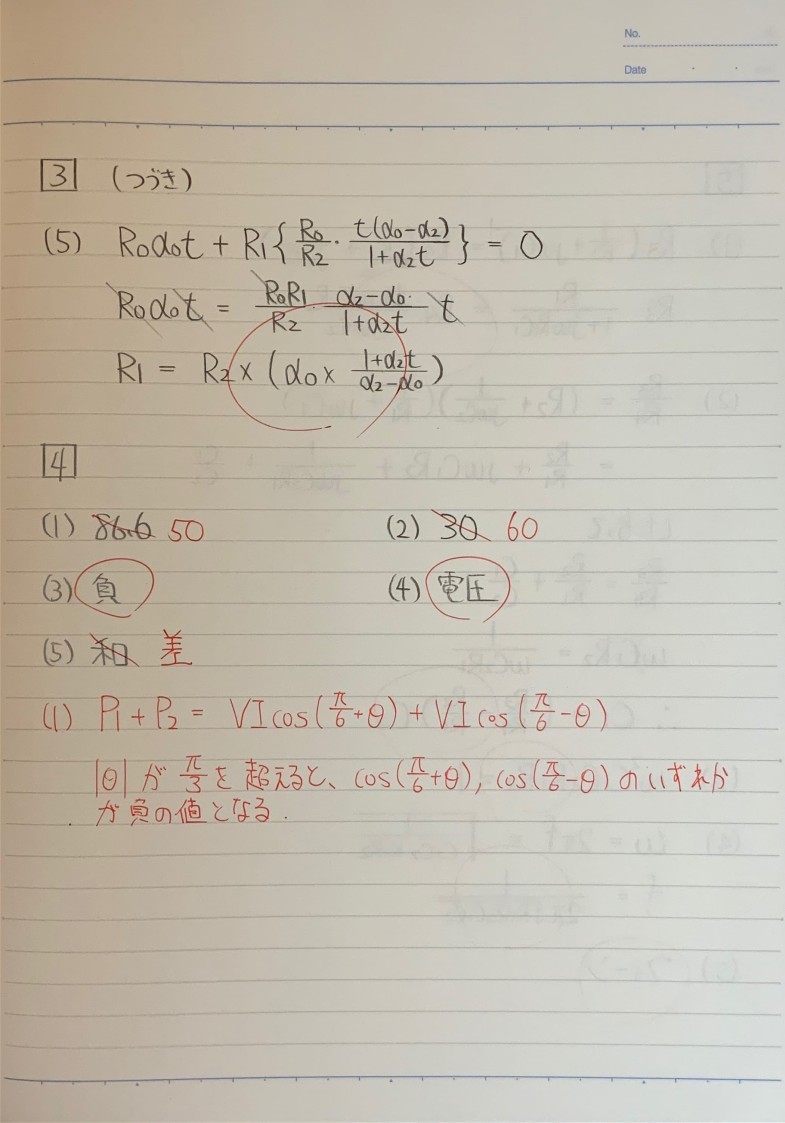 No.
Date
3 (つづき)
(5) R₀α₀t + R₁{R₀/R₂ · t(α₀-α₂)/(1+α₂t)} = 0
R₀α₀t = R₀R₁/R₂ · (α₂-α₀)/(1+α₂t) t
R₁ = R₂ × (α₀ × (1+α₂t)/(α₂-α₀))
4
(1) 86.6 50 (2) 30 60
(3) 負 (4) 電圧
(5) 和 差
(1) P₁+P₂ = VIcos(π/6+θ) + VIcos(π/6-θ)
|θ|がπ/3を超えると、cos(π/6+θ), cos(π/6-θ)のいずれか
が負の値となる.